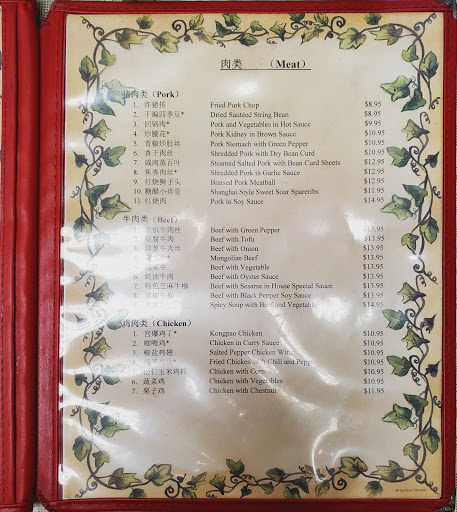 肉类 (Meat)
猪肉类 (Pork)
1. 炸猪排 Fried Pork Chop $8.95
2. 干煸四季豆* Dried Sautéed String Bean $8.95
3. 回锅肉* Pork and Vegetables in Hot Sauce $9.95
4. 炒腰花* Pork Kidney in Brown Sauce $10.95
5. 青椒炒肚丝 Pork Stomach with Green Pepper $10.95
6. 香干肉丝 Shredded Pork with Dry Bean Curd $10.95
7. 咸肉蒸百叶 Steamed Salted Pork with Bean Curd Sheets $12.95
8. 鱼香肉丝* Shredded Pork in Garlic Sauce $12.95
9. 红烧狮子头 Braised Pork Meatball $12.95
10. 糖醋小排骨 Shanghai Style Sweet Sour Spareribs $11.95
11. 红烧肉 Pork in Soy Sauce $14.95
牛肉类 (Beef)
青椒牛肉丝 Beef with Green Pepper $13.95
豆腐牛肉 Beef with Tofu $13.95
牛肉丝 Beef with Onion $13.95
Mongolian Beef $13.95
牛 Beef with Vegetable $13.95
6. 蚝油牛肉 Beef with Oyster Sauce $13.95
7. 特色芝麻牛柳 Beef with Sesame in House Special Sauce $13.95
8. 牛柳 Beef with Black Pepper Soy Sauce $13.95
Spicy Soup with Beef and Vegetable $14.95
鸡肉类 (Chicken)
1. 宫爆鸡丁* Kongpao Chicken $10.95
2. 咖喱鸡* Chicken in Curry Sauce $10.95
3. 椒盐鸡翅 Salted Pepper Chicken Wing $10.95
Fried Chicken with Chili and Pepper $10.95
仁玉米鸡粒 Chicken with Corn $10.95
6. 蔬菜鸡 Chicken with Vegetables $10.95
7. 栗子鸡 Chicken with Chestnut $11.95